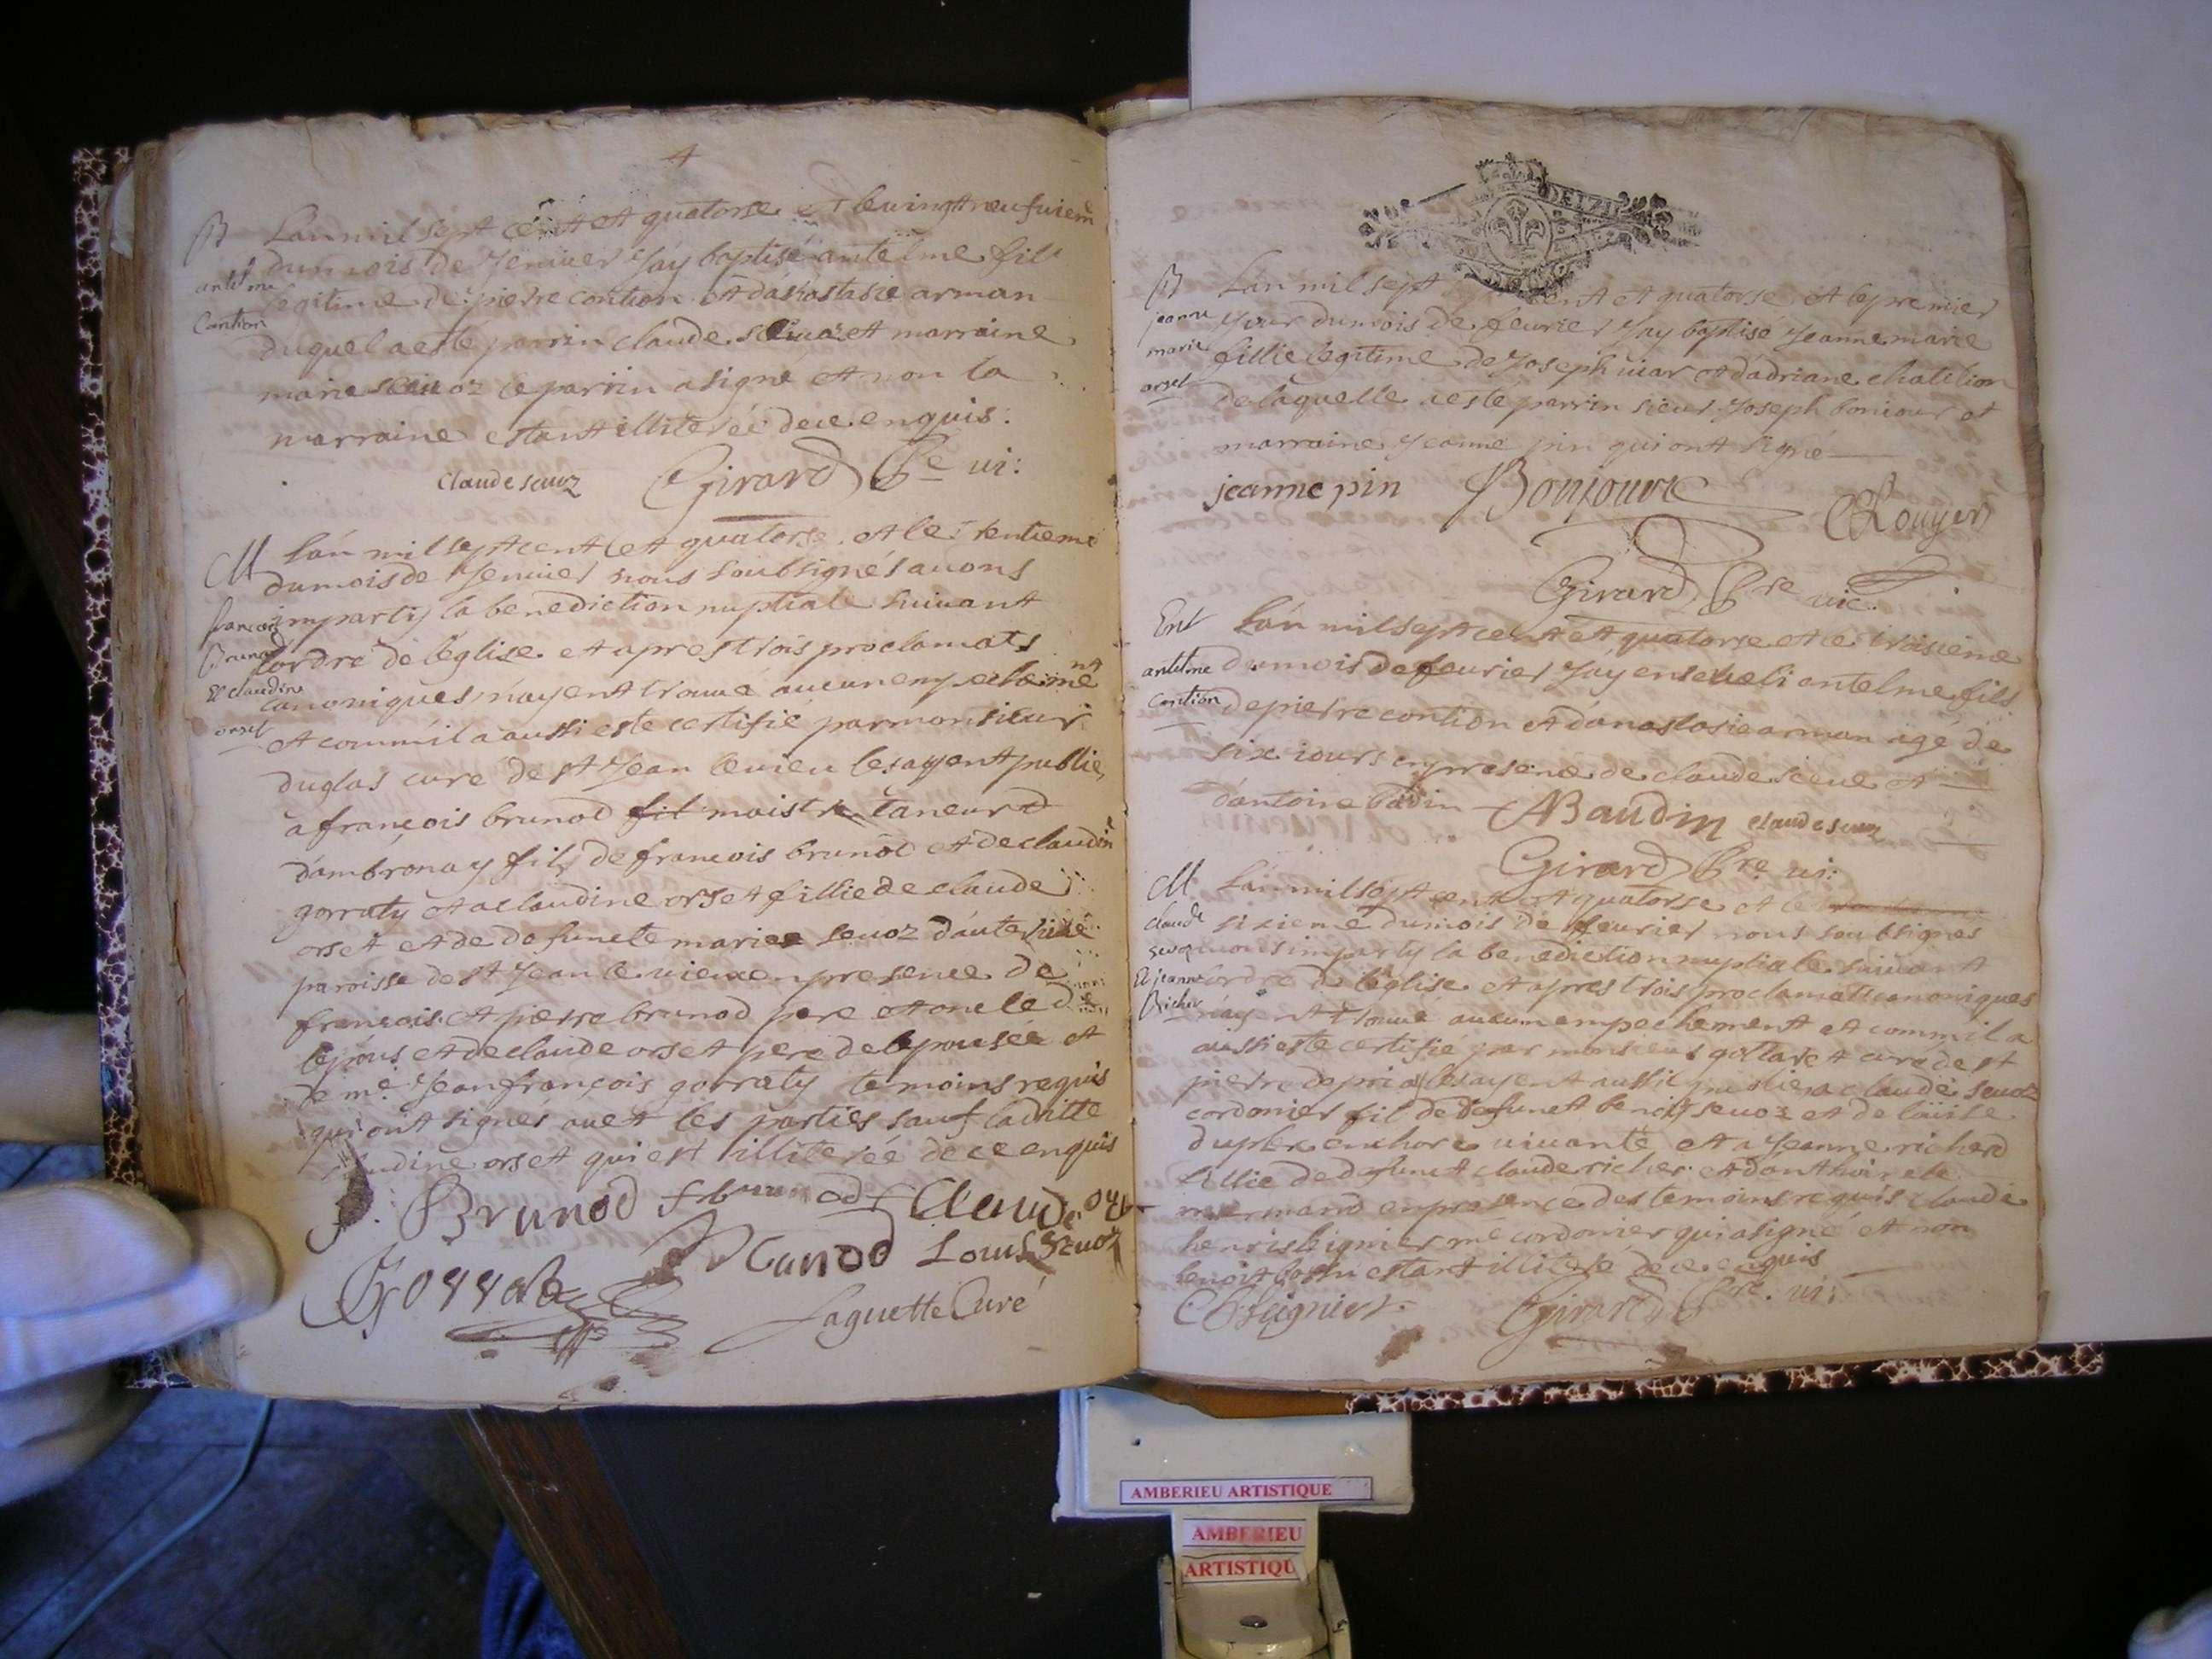 4
B Lan mil sept cent et quatorse et le vingt neufuiem
du mois de Jenuier Jay baptisé antelme fils
antelme
legitime de pierre contion et dánastasie arman
Contion
duquel a esté parrin claude seuoz et marraine
marie seuoz le parrin a signé et non la
marraine estant illiterée de ce enquis:
claude seuoz Girard Pre ui:
M Lán mil sept cent et quatorse et le trentieme
du mois de Jenuier nous soubsignés auons
francois imparty la benediction nuptiale suiuant
Brunod lordre de léglise et apres trois proclamats
Et claudine canoniques náyent trouué aucun empechemént
orset et comm'il a aussi este certifié par monsieur
duglas curé de st Jean le uieu les ayent publié,
a françois brunod fil maistre taneur d
d'ambronay fils de francois brunod et de claudin
gorraty et a claudine orset fillie de claude
orset et de defuncte marie seuoz d'
paroisse de st Jean le uieux en presence de
francois et pierre brunod pere et oncle de
lépous et de claude orset pere de lépousée et
de me Jean françois gorraty temoins requis
qui ont signés auet les parties sauf laditte
claudine orset qui est illiterée de ce enquis
Brunod Claude
Brunod Louis Seuoz
Gorraty Laguette Curé
GEN
B Lan mil sept cent et quatorse et le premier
jeanne Jour du mois de feurier Jay baptisé Jeanne marie
marie fillie legitime de Joseph uiar et dádriane chatelion
orset de laquelle a esté parrin sieur Joseph boniour et
marraine Jeanne pin qui ont signé
jeanne pin Bonjour CRouyer
Girard Pre uic.
Ent Lán mil sept cent et quatorse et le troisieme
antelme du mois de feurier Jáy enseueli antelme fils
Contion de pierre contion et dánastasie arman agé de
six iours en presence de claude seeue et
dántoine badin ABaudin claude seuoz
Girard Pre ui:
M Lán mil sept cent et quatorse et le
claude sixieme du mois de feurier nous soubsignes
seuoz auons imparty la benediction nuptiale suiuant
Et jeanne lordre de léglise et apres trois proclamats canoniques
Richer náyent trouué aucun empechement et comm'il a
aussi este certifié par monsieur curé de st
pierre les ayent aussi publié a claude seuoz
cordonier fil de defunct benoist seuoz et de
enchore uiuante et a Jeanne richard
fillie de defunct claude richer et
mermand en presence des temoins requis claude
henri me cordonier qui a signé et non
benoit estant illiteré de ce enquis
Girard Pre. ui:
AMBERIEU ARTISTIQUE
AMBERIEU
ARTISTIQU